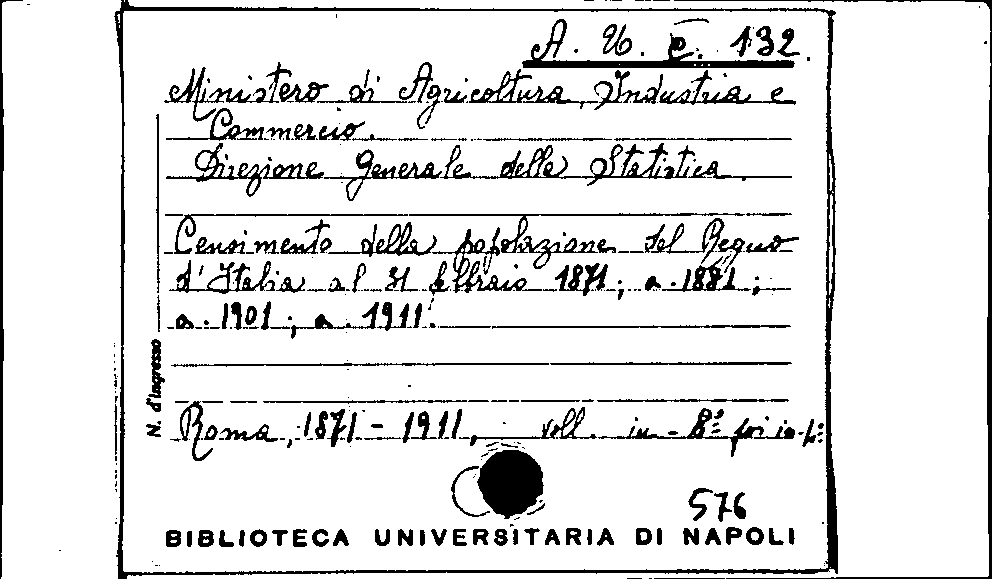 A. U. C. 132.
Ministero di Agricoltura, Industria e
Commercio.
Direzione Generale della Statistica.
Censimento della popolazione del Regno
d'Italia al 31 febbraio 1871; a. 1881;
a. 1901; a. 1911.
N. d'ingresso
Roma, 1871-1911, voll. in-8º poi in-4º
576
BIBLIOTECA UNIVERSITARIA DI NAPOLI